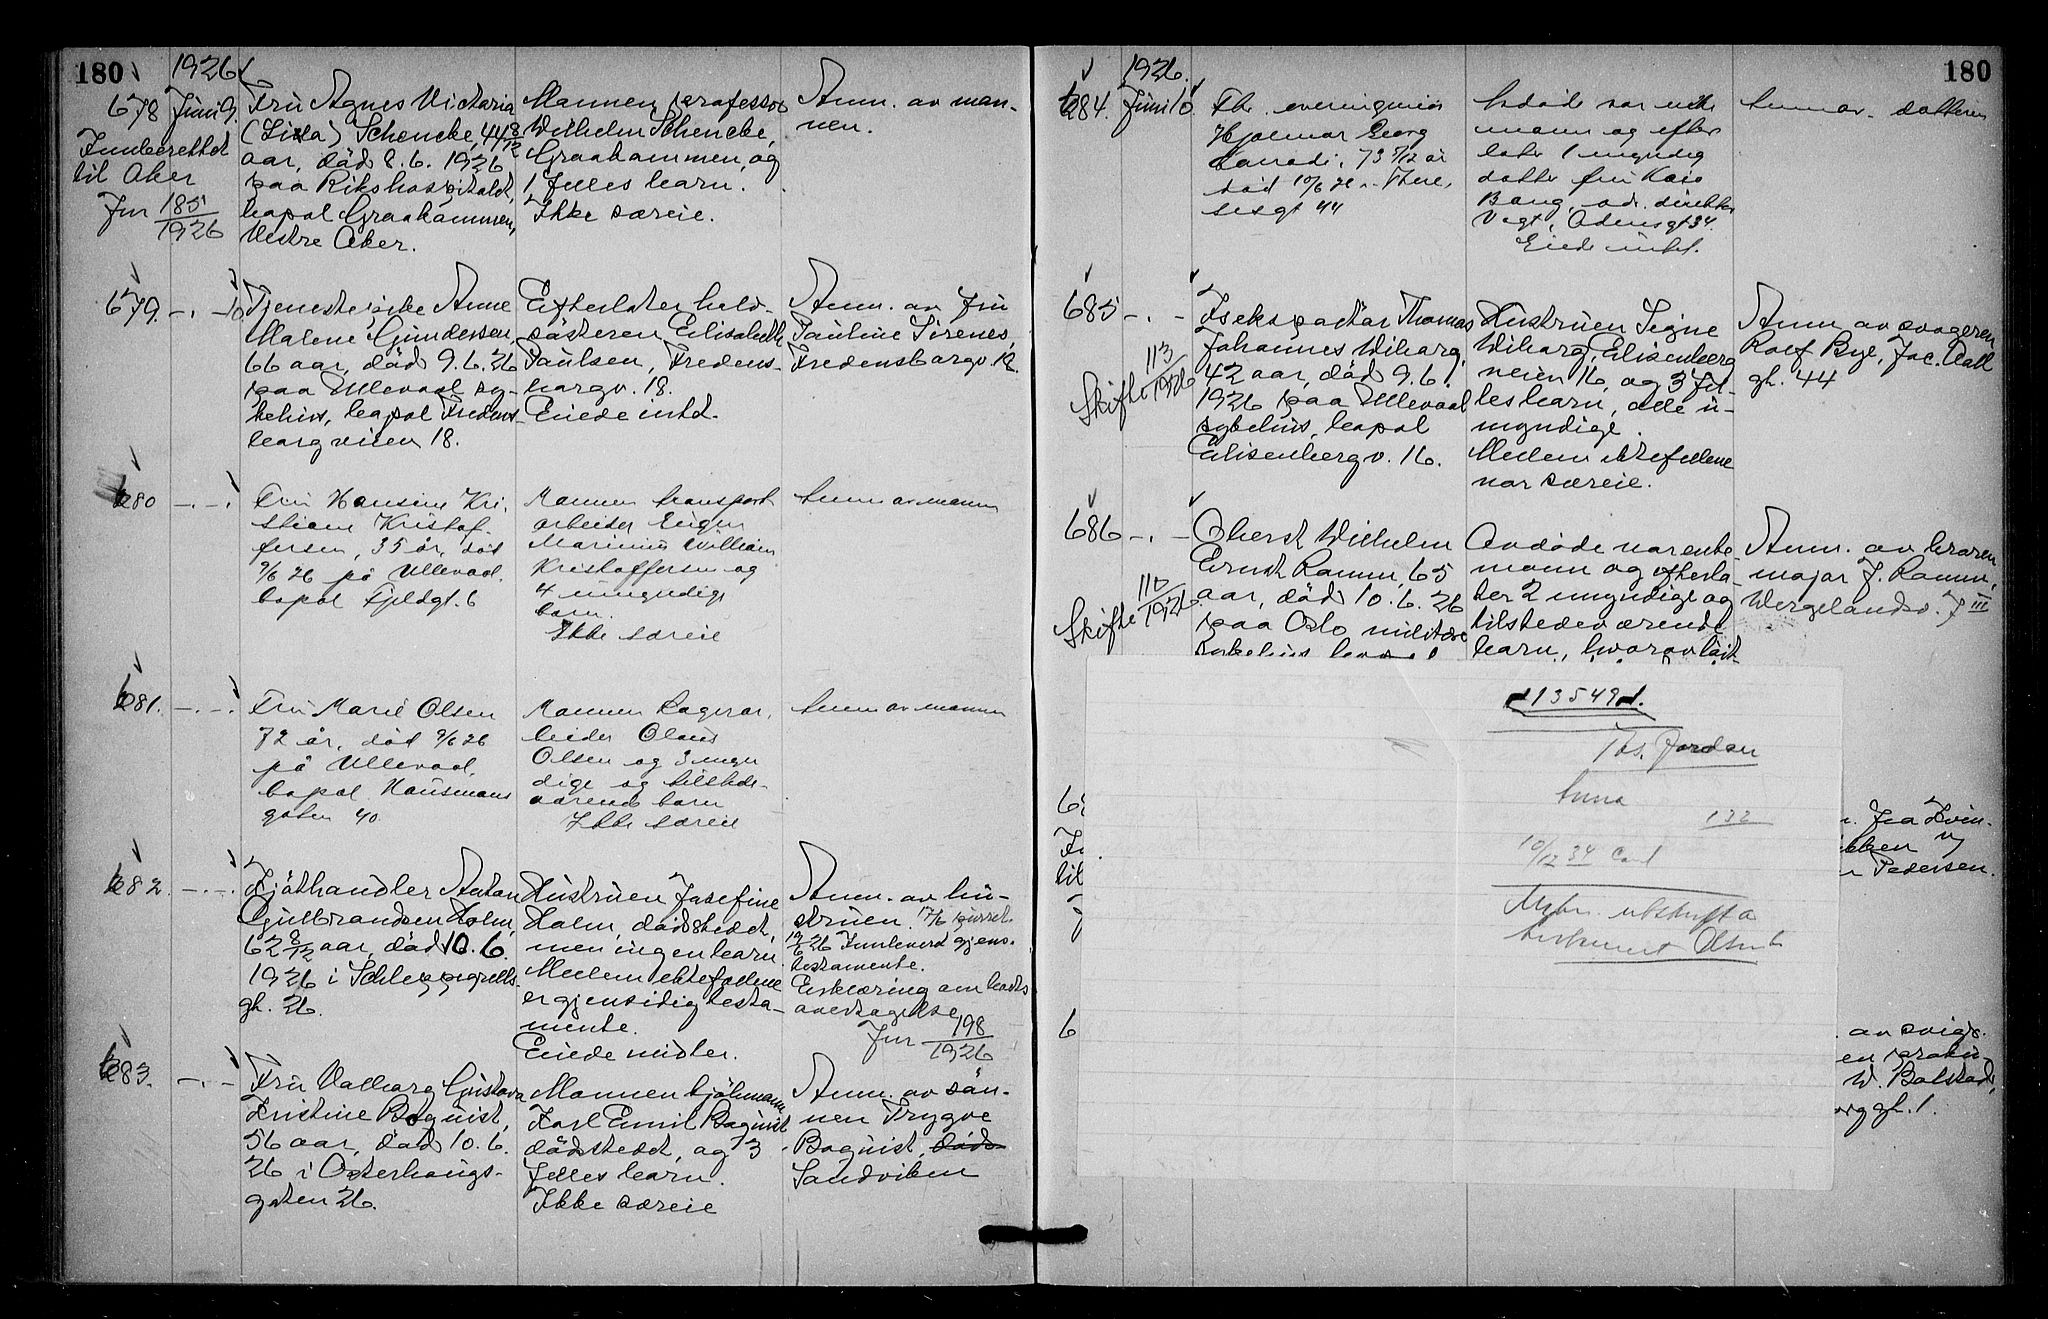 180
1926
678 Juni 9.
Innberettet
til Aker
Jnr 185/1926
Fru Agnes Victoria
Schencke, 44 8/12
aar, död 8.6. 1926
paa Rikshospitalet,
bopæl Graakammen,
Vestre Aker.
Mannen professor
Wilhelm Schencke,
Graakammen, og
1 felles barn.
Ikke særeie.
Anm. av man-
nen.
679. -.- 10.
Tjenestepike Anne
Malene Gundersen,
66 aar, död 9.6.26
paa Ullevaal sy-
kehus, bopæl Fredens-
borgveien 18.
Efterlater hel-
sösteren Elisabeth
Paulsen, Fredens-
borgv. 18.
Eiede intet.
Anm. av Fru
Pauline Sirenes,
Fredensborgv. 18.
680 -.-.
Fru Hansine Kri-
stiane Kristof-
fersen, 35 år, död
9/6 26 på Ullevaal,
bopæl Fjeldgt. 6
Mannen transport
arbeider Eugen
Marinius William
Kristoffersen og
4 umyndige
barn.
Ikke særeie
Anm av mannen
681. -.-.
Fru Marie Olsen
72 år, död 9/6 26
på Ullevaal,
bopæl Hausmanns
gaten 40
Mannen Lagerar-
beider Olaus
Olsen og 3 myn
dige og tilstede-
værende barn
Ikke særeie
Anm av mannen
682. -.-.
Kjöthandler Anton
Gulbrandsen Holm,
62 8/12 aar, död 10.6.
1926 i Schleppegrells-
gt. 26.
Hustruen Josefine
Holm, dödstedet,
men ingen barn.
Mellem ektefellene
er gjensidig testa-
mente.
Eiede midler.
Anm. av hu-
struen.
Innlevert gjens.
testamente.
Erklæring om boets
overtagelse
Jnr 198/1926
683. -.-
Fru Valborg Gustava
Kristine Boquist,
56 aar, död 10.6.
26 i Osterhaugs-
gaten 26.
Mannen
Karl Emil Boquist
dödstedet, og 3
felles barn.
Ikke særeie
Anm. av sön-
nen Trygve
Boquist,
Sandviken
1926.
180
684. Juni 10.
Hjalmar Georg
73 5/12 år
död 10/6 26 i There-
sesgt 44
Avdöde var enke
mann og efter
later 1 myndig
datter fru
Bang, adr. direktör
Vogt, Odinsgt 34.
Eiede intet.
Anm av datteren
685 -.-
Skifte 113/1926
Isekspeditör Thomas
Johannes Wiborg,
42 aar, död 9.6.
1926 paa Ullevaal
sykehus, bopæl
Elisenbergv. 16.
Hustruen Signe
Wiborg, Elisenberg
veien 16, og 3 fel-
les barn, alle u-
myndige.
Mellem ektefellene
var særeie.
Anm av svogeren
Rolf Bye, Jac. Aall
gt. 44
686 -.-
Skifte 110/1926
Oberst Wilhelm
Ernst Ramm, 65
aar, död 10.6.26
paa Oslo militære
sykehus
Avdöde var enke-
mann og efterla-
ter 2 myndige og
tilstedeværende
barn, hvorav
Anm. av broren
major J. Ramm,
Wergelandsv. 7 III
13549
Ths. Jordan
Anna
132
10/12 34
utskrift a
testament
6
til
Pedersen.
6
av svige-
W. Bolstad,
gt. 1.